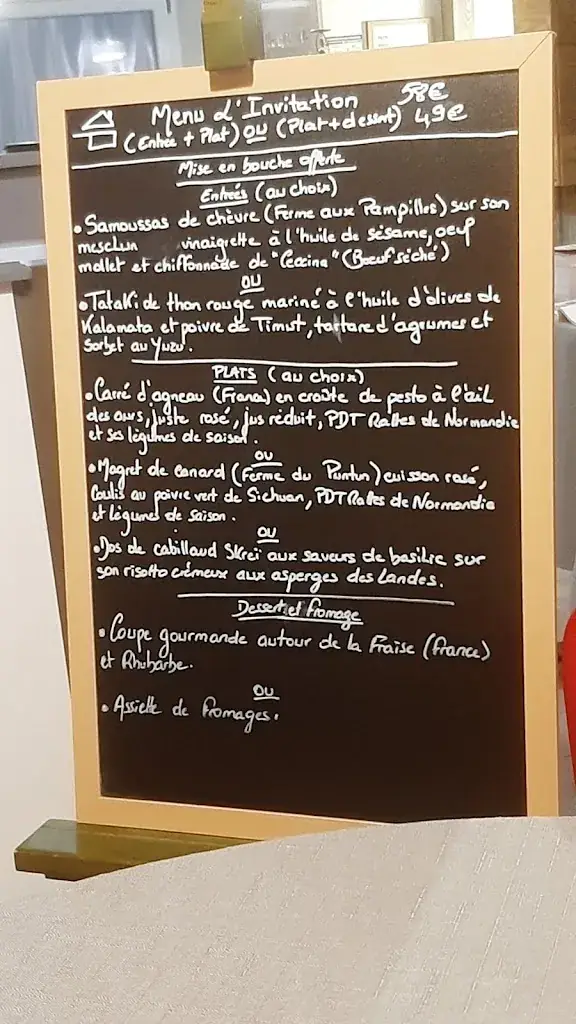 Menu d'Invitation 58€
(Entrée + Plat) OU (Plat + dessert) 49€
Mise en bouche offerte
Entrées (au choix)
• Samoussas de chèvre (Ferme aux Pampilles) sur son
mesclun vinaigrette à l'huile de sésame, oeuf
mollet et chiffonnade de "Cecina" (Boeuf séché)
OU
• Tataki de thon rouge mariné à l'huile d'olives de
Kalamata et poivre de Timut, tartare d'agrumes et
Sorbet au Yuzu.
PLATS (au choix)
• Carré d'agneau (France) en croûte de pesto à l'ail
des ours, juste rosé, jus réduit, PDT Rattes de Normandie
et ses légumes de saison.
OU
• Magret de canard (Ferme du ) cuisson rosé,
Coulis au poivre vert de Sichuan, PDT Rattes de Normandie
et légumes de Saison.
OU
• Dos de cabillaud Skreï aux saveurs de basilic sur
son risotto crémeux aux asperges des Landes.
Dessert et fromage
• Coupe gourmande autour de la Fraise (France)
et Rhubarbe.
OU
• Assiette de fromages.